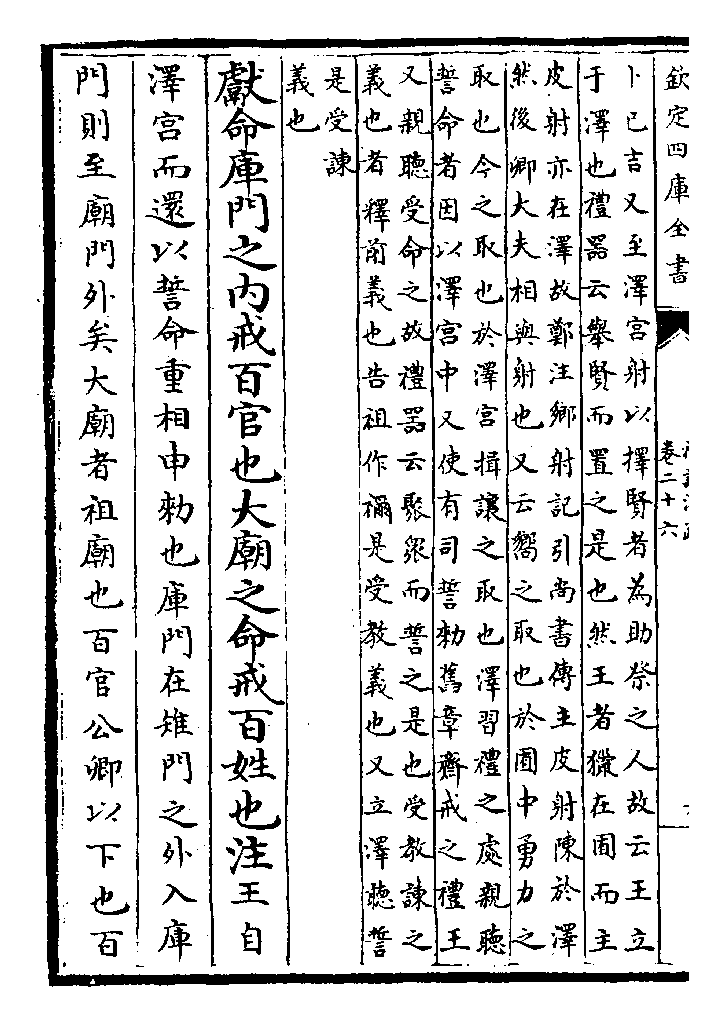 欽定四庫全書
卷二十六
卜已吉又至澤宮射以擇賢者為助祭之人故云王立
于澤也禮器云舉賢而置之是也然王者獵在囿而主
皮射亦在澤故鄭注鄉射記引尚書傳主皮射陳於澤
然後卿大夫相與射也又云嚮之取也於囿中勇力之
取也今之取也於澤宮揖讓之取也澤習禮之處親聽
誓命者因以澤宮中又使有司誓勑舊章齋戒之禮王
又親聽受命之故禮器云聚衆而誓之是也受教諫之
義也者釋前義也告祖作禰是受教義也又立澤聽誓
是受諫
義也
獻命庫門之内戒百官也大廟之命戒百姓也注王自
澤宮而還以誓命重相申勑也庫門在雉門之外入庫
門則至廟門外矣大廟者祖廟也百官公卿以下也百